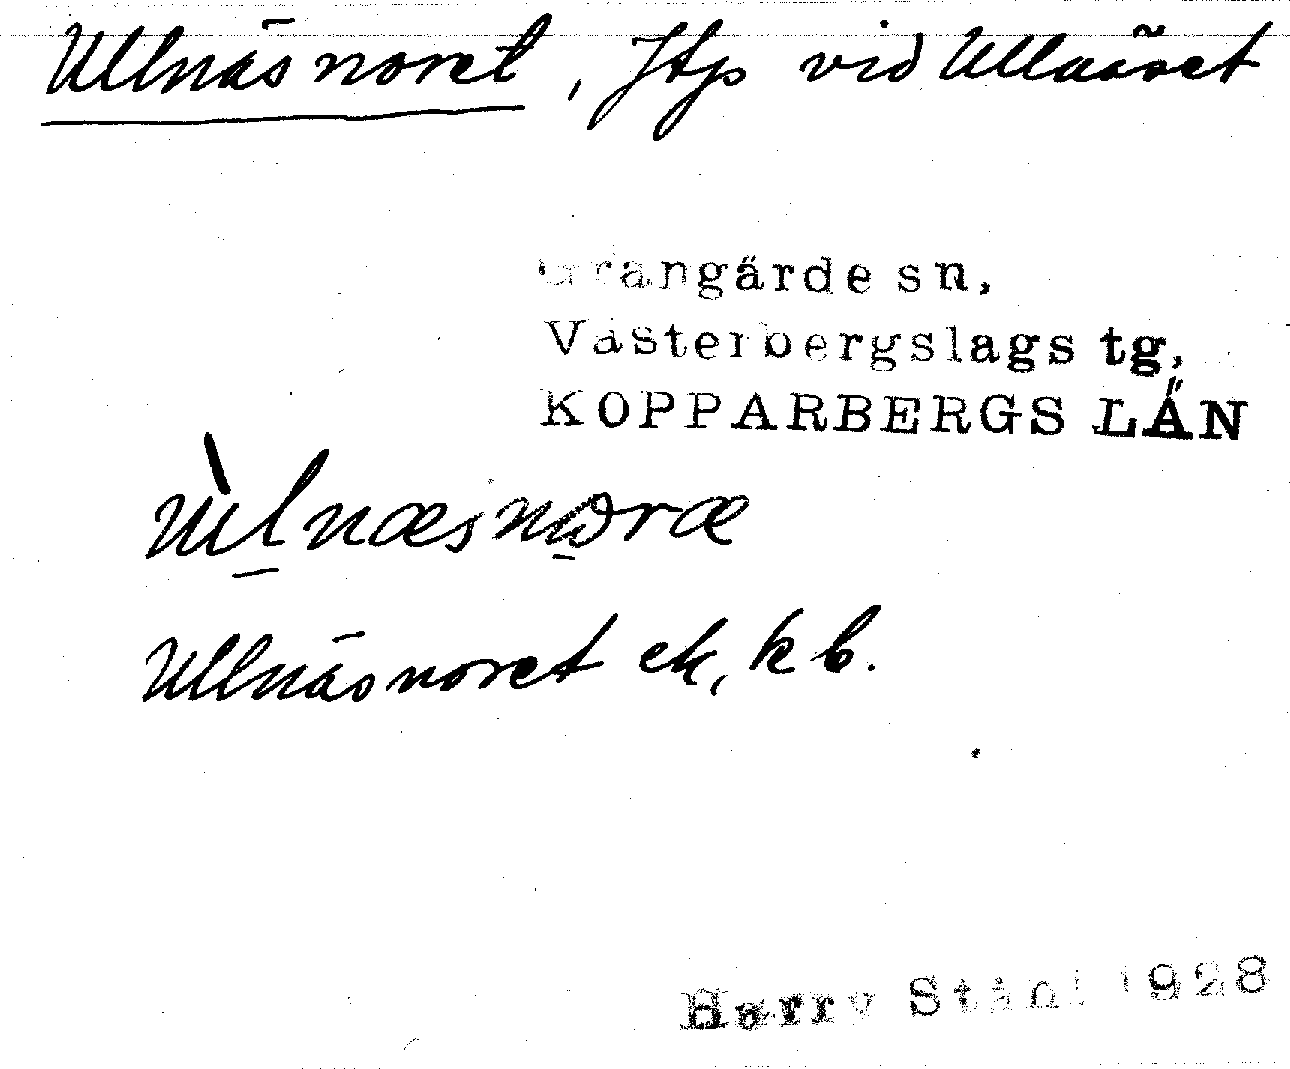 Ullnäsnoret, Jtp vid Ullnäset
Grangärde sn,
Västerbergslags tg,
KOPPARBERGS LÄN
ùlnæsnɷræ
Ullnäsnoret ek, kb.
Harry Ståhl 1928